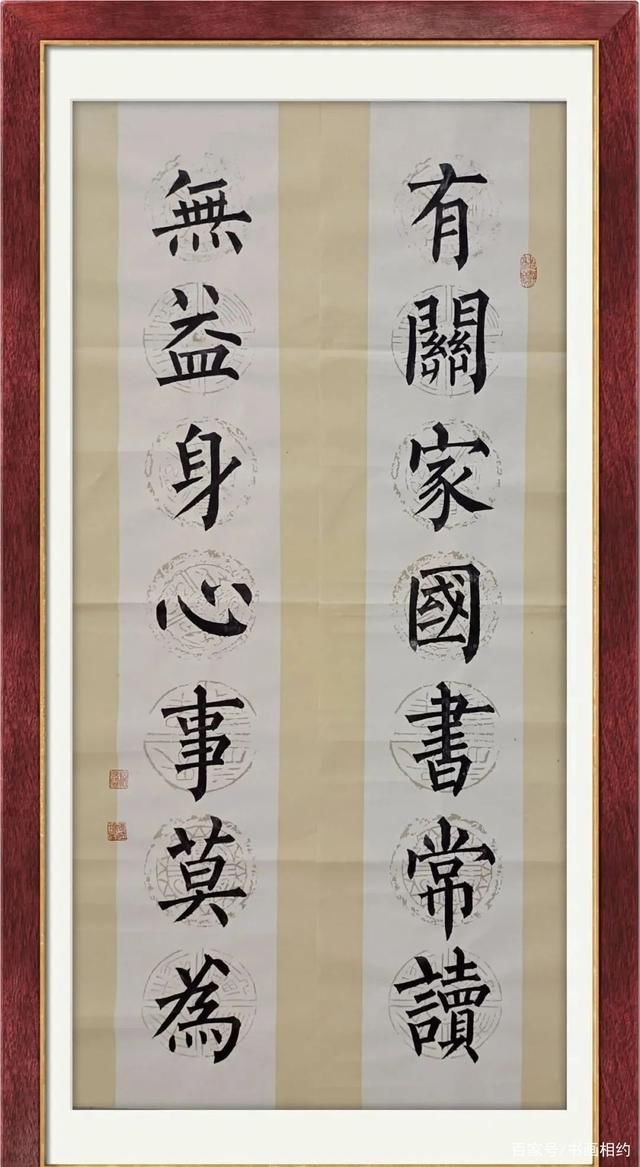 有關家國書常讀
無益身心事莫為
百家号/书画相约